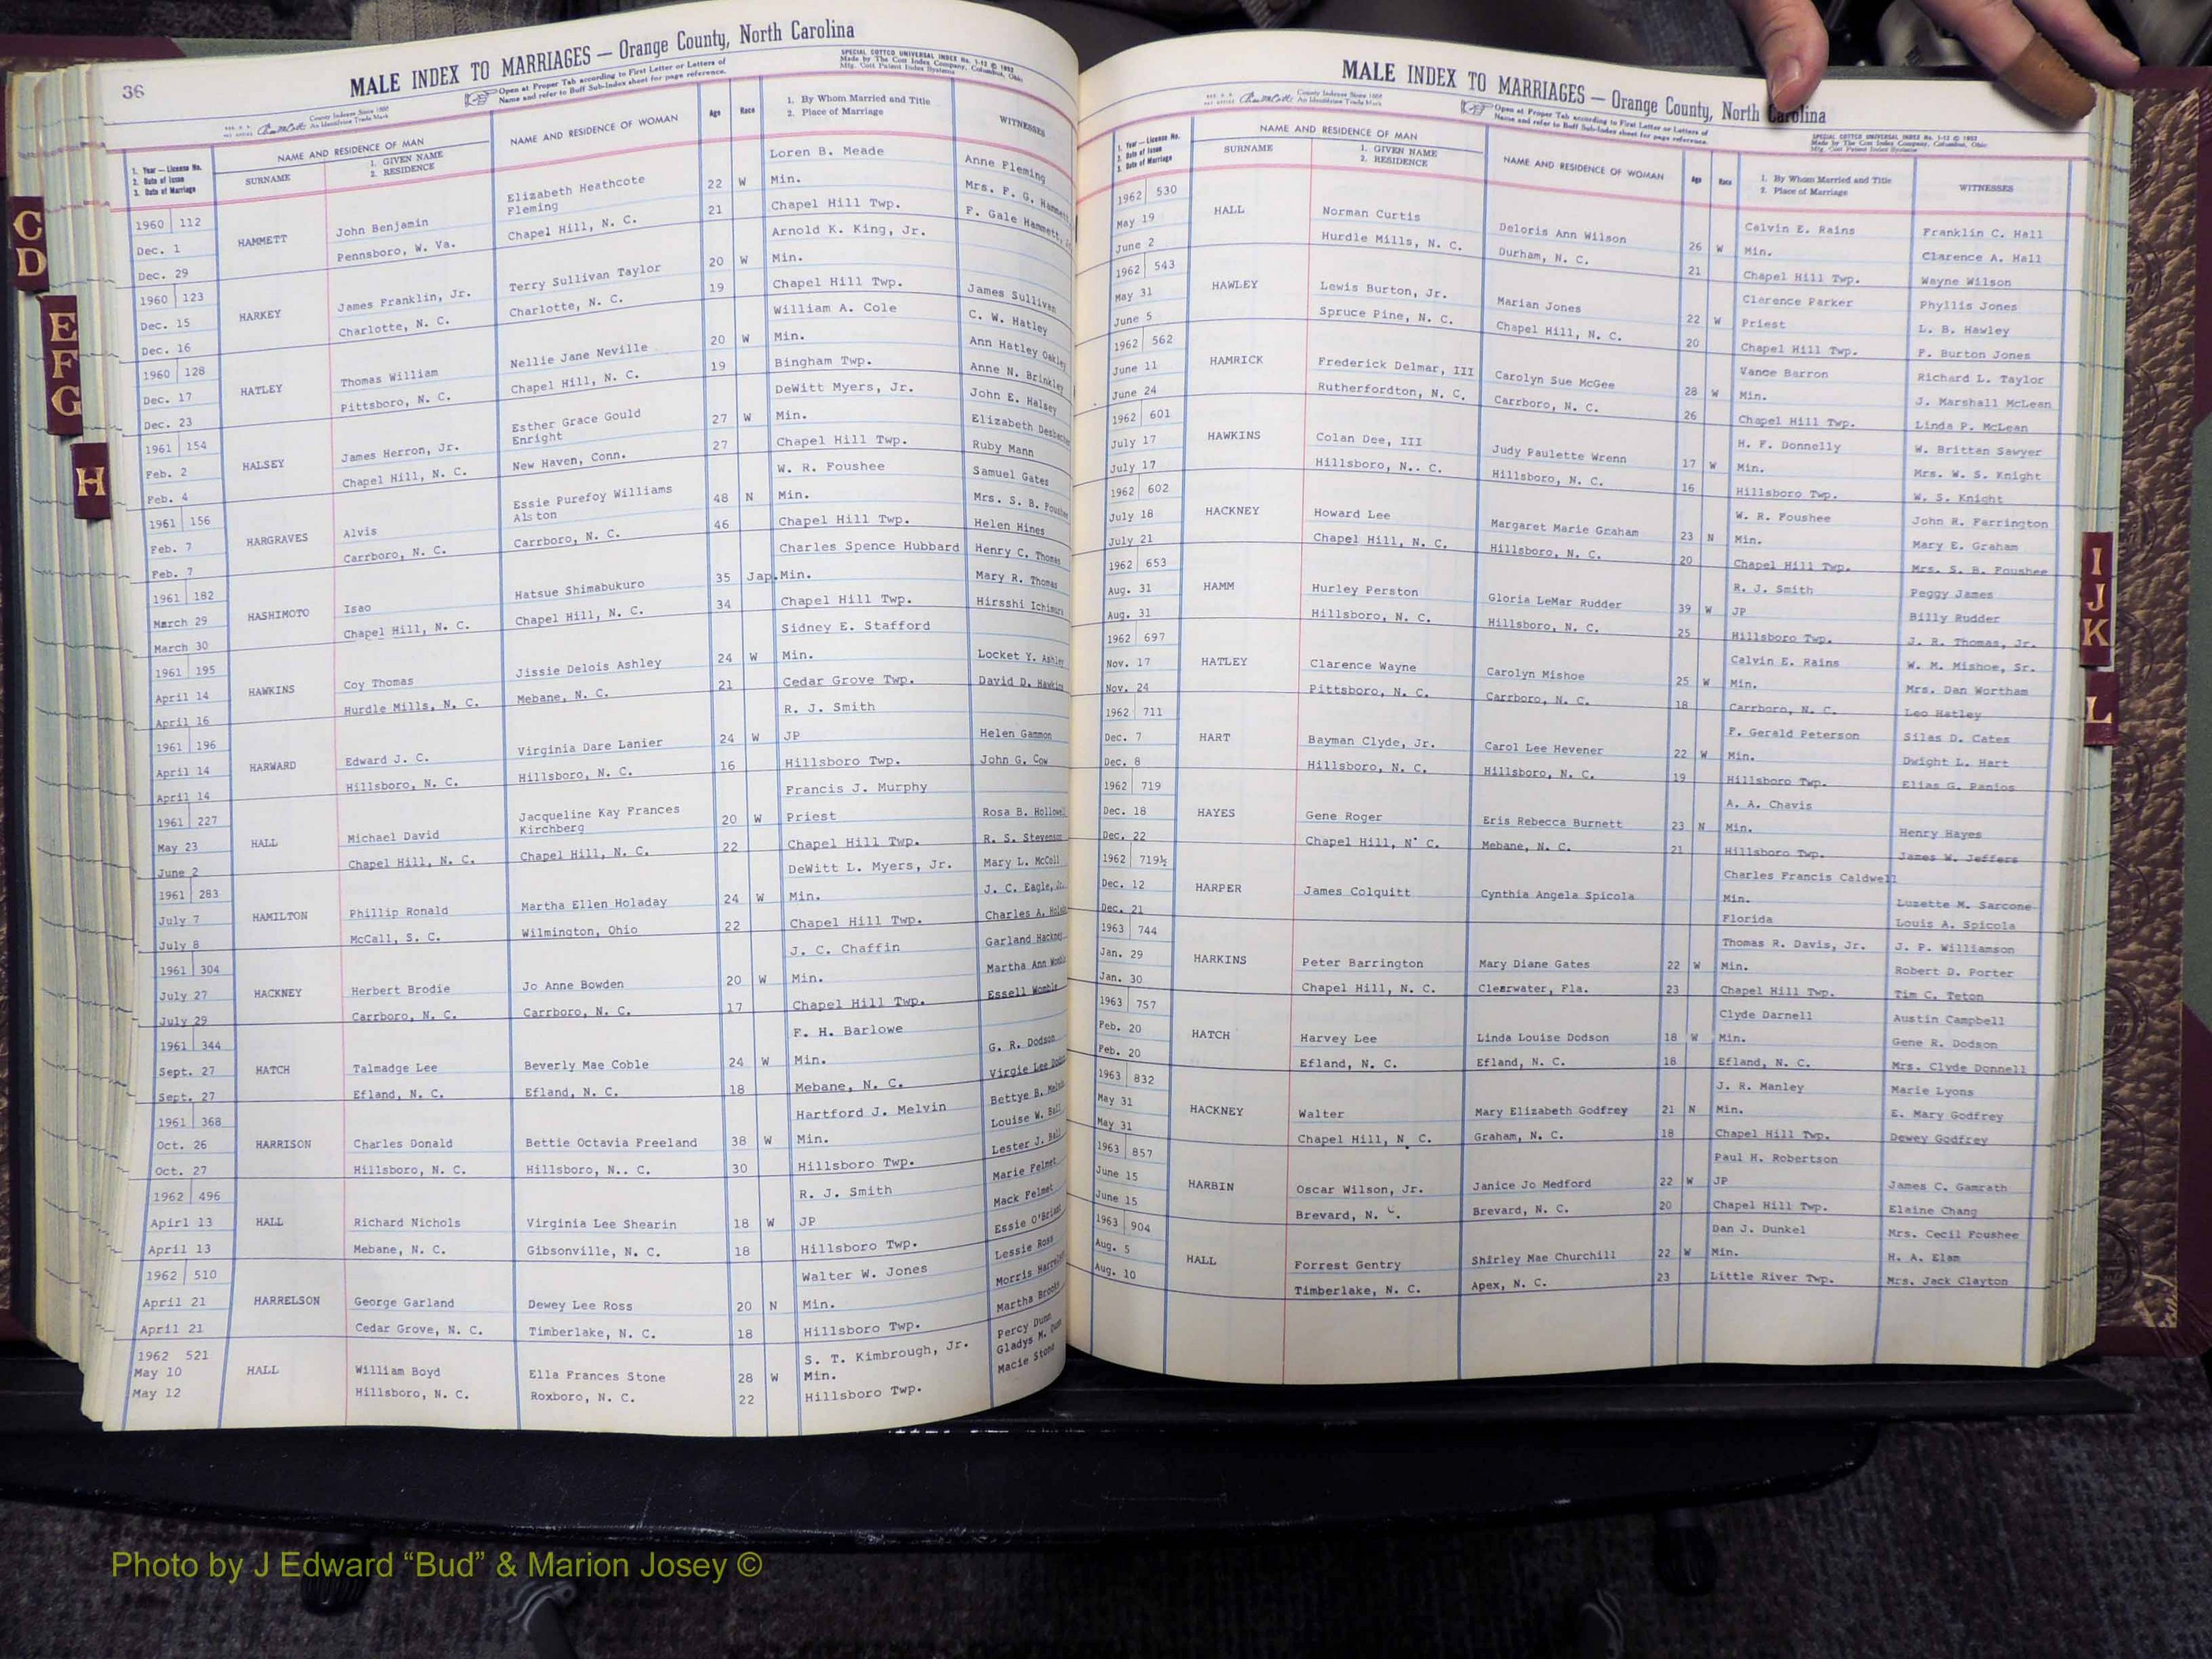 36
MALE INDEX TO MARRIAGES — Orange County, North Carolina
Open at Proper Tab according to First Letter or Letters of
Name and refer to Buff Sub-Index sheet for page reference.
SPECIAL COTTCO UNIVERSAL INDEX No. 1-12 © 1953
Made by The Cott Index Company, Columbus, Ohio
Mfg. Cott Patent Index Systems
County Indexes Since 1888
An Identifying Trade Mark
1. Year — License No.
2. Date of Issue
3. Date of Marriage
NAME AND RESIDENCE OF MAN
SURNAME
1. GIVEN NAME
2. RESIDENCE
NAME AND RESIDENCE OF WOMAN
Age
Race
1. By Whom Married and Title
2. Place of Marriage
WITNESSES
1960 112 HAMMETT John Benjamin Elizabeth Heathcote Fleming 22 W Loren B. Meade Anne Fleming
Dec. 1 Pennsboro, W. Va. Chapel Hill, N. C. 21 Min. Mrs. F. G. Hammett
Dec. 29 Chapel Hill Twp. F. Gale Hammett,
1960 123 HARKEY James Franklin, Jr. Terry Sullivan Taylor 20 W Arnold K. King, Jr.
Dec. 15 Charlotte, N. C. Charlotte, N. C. 19 Min.
Dec. 16 Chapel Hill Twp. James Sullivan
1960 128 HATLEY Thomas William Nellie Jane Neville 20 W William A. Cole C. W. Hatley
Dec. 17 Pittsboro, N. C. Chapel Hill, N. C. 19 Min. Ann Hatley Oakley
Dec. 23 Bingham Twp. Anne N. Brinkley
1961 154 HALSEY James Herron, Jr. Esther Grace Gould Enright 27 W DeWitt Myers, Jr. John E. Halsey
Feb. 2 Chapel Hill, N. C. New Haven, Conn. 27 Min. Elizabeth
Feb. 4 Chapel Hill Twp. Ruby Mann
1961 156 HARGRAVES Alvis Essie Purefoy Williams Alston 48 N W. R. Foushee Samuel Gates
Feb. 7 Carrboro, N. C. Carrboro, N. C. 46 Min. Mrs. S. B. Foushee
Feb. 7 Chapel Hill Twp. Helen Hines
1961 182 HASHIMOTO Isao Hatsue Shimabukuro 35 Jap. Charles Spence Hubbard Henry C. Thomas
March 29 Chapel Hill, N. C. Chapel Hill, N. C. 34 Min. Mary R. Thomas
March 30 Chapel Hill Twp. Hirsshi
1961 195 HAWKINS Coy Thomas Jissie Delois Ashley 24 W Sidney E. Stafford
April 14 Hurdle Mills, N. C. Mebane, N. C. 21 Min. Locket Y. Ashley
April 16 Cedar Grove Twp. David D. Hawkins
1961 196 HARWARD Edward J. C. Virginia Dare Lanier 24 W R. J. Smith
April 14 Hillsboro, N. C. Hillsboro, N. C. 16 JP Helen Gammon
April 14 Hillsboro Twp. John G. Cow
1961 227 HALL Michael David Jacqueline Kay Frances Kirchberg 20 W Francis J. Murphy
May 23 Chapel Hill, N. C. Chapel Hill, N. C. 22 Priest Rosa B. Hollowell
June 2 Chapel Hill Twp. R. S. Stevenson
1961 283 HAMILTON Phillip Ronald Martha Ellen Holaday 24 W DeWitt L. Myers, Jr. Mary L. McCall
July 7 McCall, S. C. Wilmington, Ohio 22 Min. J. C. Eagle, Jr.
July 8 Chapel Hill Twp. Charles A.
1961 304 HACKNEY Herbert Brodie Jo Anne Bowden 20 W J. C. Chaffin Garland Hackney
July 27 Carrboro, N. C. Carrboro, N. C. 17 Min. Martha Ann Womble
July 29 Chapel Hill Twp. Essell Womble
1961 344 HATCH Talmadge Lee Beverly Mae Coble 24 W F. H. Barlowe
Sept. 27 Efland, N. C. Efland, N. C. 18 Min. G. R. Dodson
Sept. 27 Mebane, N. C. Virgie Lee Dodson
1961 368 HARRISON Charles Donald Bettie Octavia Freeland 38 W Hartford J. Melvin Bettye B. Melvin
Oct. 26 Hillsboro, N. C. Hillsboro, N.. C. 30 Min. Louise W. Ball
Oct. 27 Hillsboro Twp. Lester J. Ball
1962 496 HALL Richard Nichols Virginia Lee Shearin 18 W R. J. Smith Marie Felmet
Apirl 13 Mebane, N. C. Gibsonville, N. C. 18 JP Mack Felmet
April 13 Hillsboro Twp. Essie O'Briant
1962 510 HARRELSON George Garland Dewey Lee Ross 20 N Walter W. Jones Lessie Ross
April 21 Cedar Grove, N. C. Timberlake, N. C. 18 Min. Morris Harrelson
April 21 Hillsboro Twp. Martha Brooks
1962 521 HALL William Boyd Ella Frances Stone 28 W S. T. Kimbrough, Jr. Percy Dunn
May 10 Hillsboro, N. C. Roxboro, N. C. 22 Min. Gladys M. Dunn
May 12 Hillsboro Twp. Macie Stone
MALE INDEX TO MARRIAGES — Orange County, North Carolina
Open at Proper Tab according to First Letter or Letters of
Name and refer to Buff Sub-Index sheet for page reference.
SPECIAL COTTCO UNIVERSAL INDEX No. 1-12 © 1953
Made by The Cott Index Company, Columbus, Ohio
Mfg. Cott Patent Index Systems
County Indexes Since 1888
An Identifying Trade Mark
1. Year — License No.
2. Date of Issue
3. Date of Marriage
NAME AND RESIDENCE OF MAN
SURNAME
1. GIVEN NAME
2. RESIDENCE
NAME AND RESIDENCE OF WOMAN
Age
Race
1. By Whom Married and Title
2. Place of Marriage
WITNESSES
1962 530 HALL Norman Curtis Deloris Ann Wilson 26 W Calvin E. Rains Franklin C. Hall
May 19 Hurdle Mills, N. C. Durham, N. C. 21 Min. Clarence A. Hall
June 2 Chapel Hill Twp. Wayne Wilson
1962 543 HAWLEY Lewis Burton, Jr. Marian Jones 22 W Clarence Parker Phyllis Jones
May 31 Spruce Pine, N. C. Chapel Hill, N. C. 20 Priest L. B. Hawley
June 5 Chapel Hill Twp. F. Burton Jones
1962 562 HAMRICK Frederick Delmar, III Carolyn Sue McGee 28 W Vance Barron Richard L. Taylor
June 11 Rutherfordton, N. C. Carrboro, N. C. 26 Min. J. Marshall McLean
June 24 Chapel Hill Twp. Linda P. McLean
1962 601 HAWKINS Colan Dee, III Judy Paulette Wrenn 17 W H. F. Donnelly W. Brittan Sawyer
July 17 Hillsboro, N.. C. Hillsboro, N. C. 16 Min. Mrs. W. S. Knight
July 17 Hillsboro Twp. W. S. Knight
1962 602 HACKNEY Howard Lee Margaret Marie Graham 23 N W. R. Foushee John R. Farrington
July 18 Chapel Hill, N. C. Hillsboro, N. C. 20 Min. Mary E. Graham
July 21 Chapel Hill Twp. Mrs. S. B. Foushee
1962 653 HAMM Hurley Perston Gloria LeMar Rudder 39 W R. J. Smith Peggy James
Aug. 31 Hillsboro, N. C. Hillsboro, N. C. 25 JP Billy Rudder
Aug. 31 Hillsboro Twp. J. R. Thomas, Jr.
1962 697 HATLEY Clarence Wayne Carolyn Mishoe 25 W Calvin E. Rains W. M. Mishoe, Sr.
Nov. 17 Pittsboro, N. C. Carrboro, N. C. 18 Min. Mrs. Dan Wortham
Nov. 24 Carrboro, N. C. Leo Hatley
1962 711 HART Bayman Clyde, Jr. Carol Lee Hevener 22 W F. Gerald Peterson Silas D. Cates
Dec. 7 Hillsboro, N. C. Hillsboro, N. C. 19 Min. Dwight L. Hart
Dec. 8 Hillsboro Twp. Elias G. Panios
1962 719 HAYES Gene Roger Eris Rebecca Burnett 23 N A. A. Chavis
Dec. 18 Chapel Hill, N. C. Mebane, N. C. 21 Min. Henry Hayes
Dec. 22 Hillsboro Twp. James W. Jeffers
1962 719½ HARPER James Colquitt Cynthia Angela Spicola Charles Francis Caldwell
Dec. 12 Min. Luzette M. Sarcone
Dec. 21 Florida Louis A. Spicola
1963 744 HARKINS Peter Barrington Mary Diane Gates 22 W Thomas R. Davis, Jr. J. P. Williamson
Jan. 29 Chapel Hill, N. C. Clearwater, Fla. 23 Min. Robert D. Porter
Jan. 30 Chapel Hill Twp. Tim C. Teton
1963 757 HATCH Harvey Lee Linda Louise Dodson 18 W Clyde Darnell Austin Campbell
Feb. 20 Efland, N. C. Efland, N. C. 18 Min. Gene R. Dodson
Feb. 20 Efland, N. C. Mrs. Clyde Donnell
1963 832 HACKNEY Walter Mary Elizabeth Godfrey 21 N J. R. Manley Marie Lyons
May 31 Chapel Hill, N. C. Graham, N. C. 18 Min. E. Mary Godfrey
May 31 Chapel Hill Twp. Dewey Godfrey
1963 857 HARBIN Oscar Wilson, Jr. Janice Jo Medford 22 W Paul H. Robertson
June 15 Brevard, N. C. Brevard, N. C. 20 JP James C. Gamrath
June 15 Chapel Hill Twp. Elaine Chang
1963 904 HALL Forrest Gentry Shirley Mae Churchill 22 W Dan J. Dunkel Mrs. Cecil Foushee
Aug. 5 Timberlake, N. C. Apex, N. C. 23 Min. H. A. Elam
Aug. 10 Little River Twp. Mrs. Jack Clayton
C
D
E
F
G
H
I
J
K
L
Photo by J Edward “Bud” & Marion Josey ©